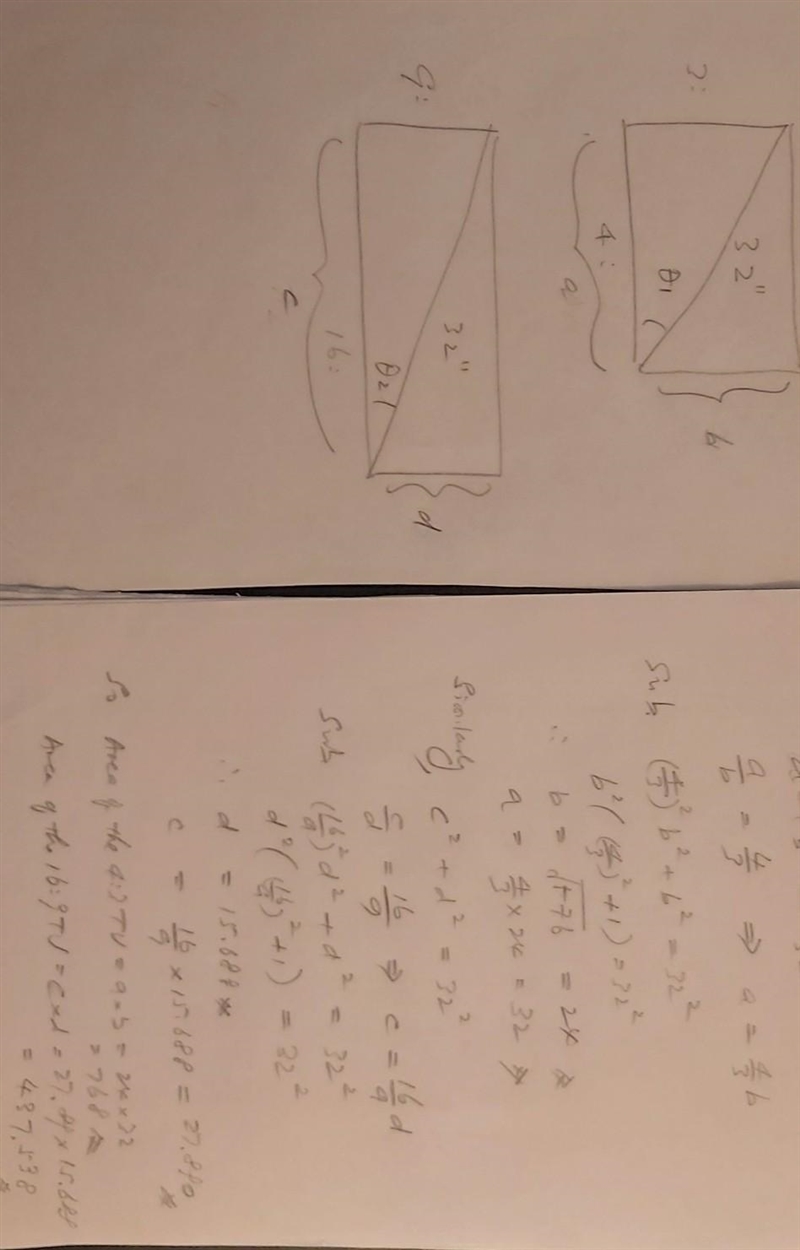 3:
32"
θ1
4:
a
b
9:
32"
θ2
16:
c
d
a/b = 4/3 ⇒ a = 4/3 b
Sub. (4/3)² b² + b² = 32²
b² ((4/3)² + 1) = 32²
∴ b = √576 = 24
a = 4/3 × 24 = 32
Similarly, c² + d² = 32²
c/d = 16/9 ⇒ c = 16/9 d
Sub (16/9)² d² + d² = 32²
d² ((16/9)² + 1) = 32²
∴ d = 15.688
c = 16/9 × 15.688 = 27.890
So Area of the 4:3 TV = a × b = 24 × 32
= 768
Area of the 16:9 TV = c × d = 27.89 × 15.688
= 437.538